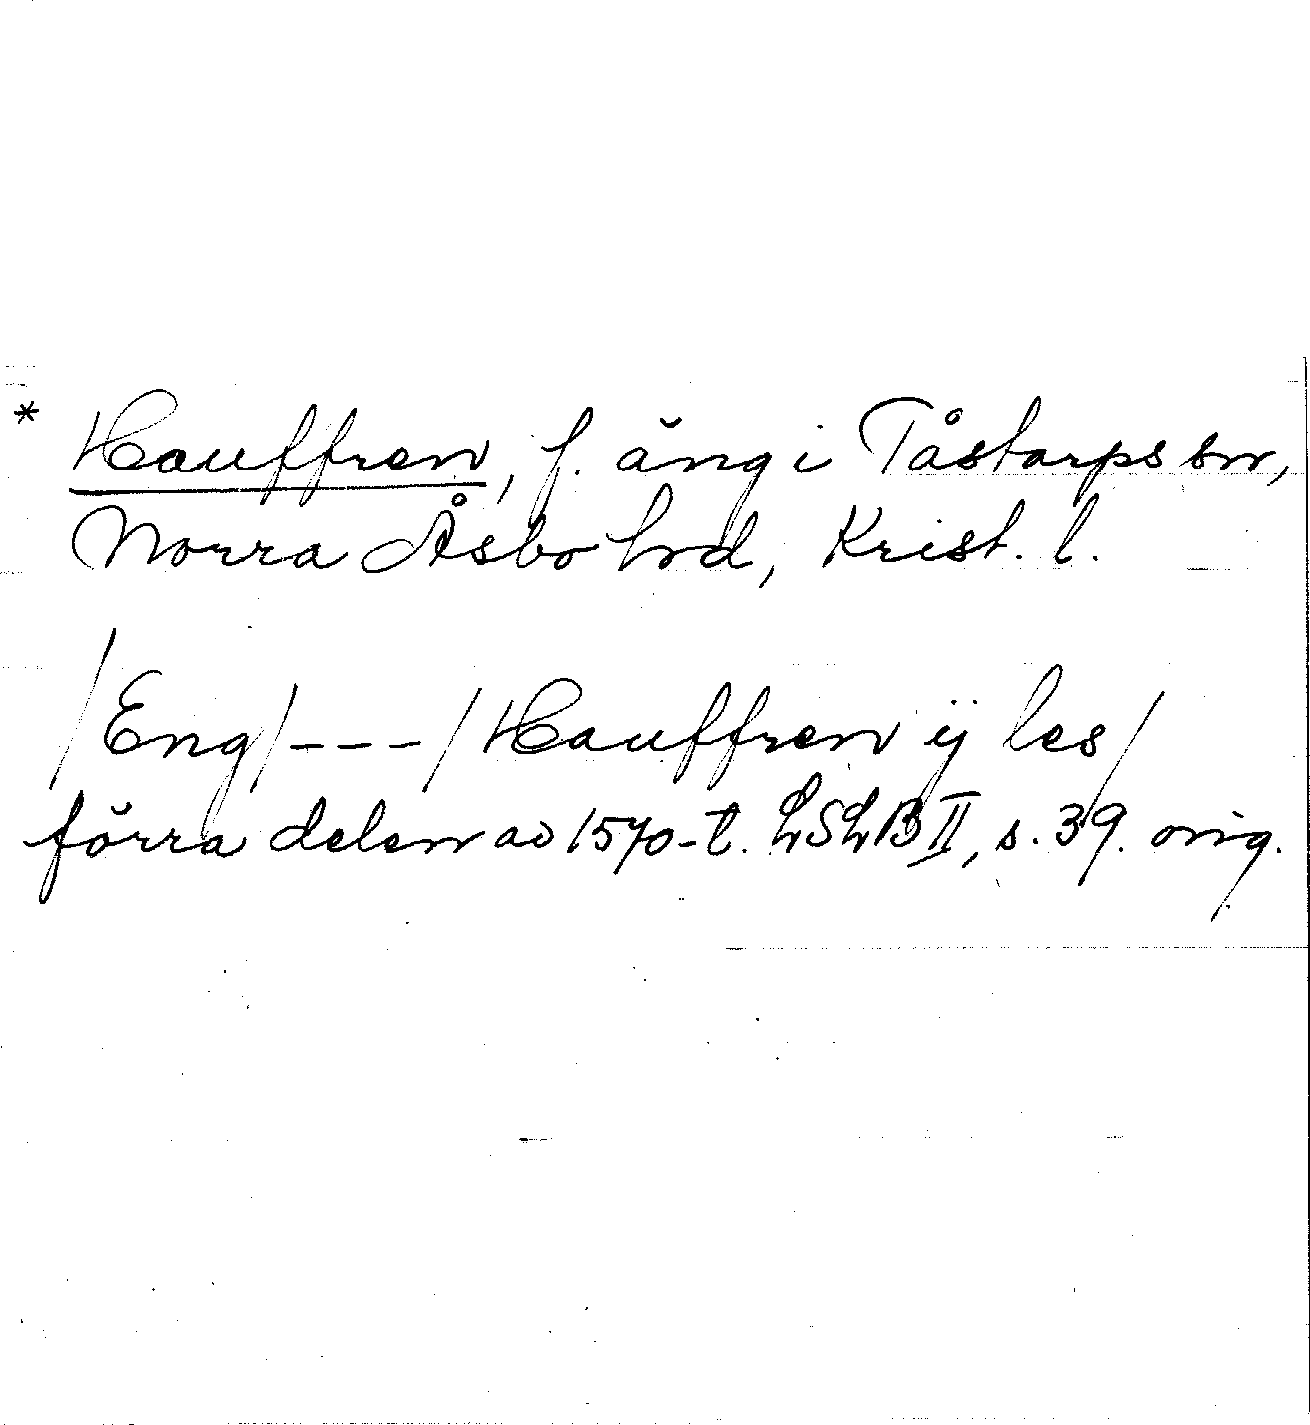 * Hauffren, f. äng i Tåstarps sn,
Norra Åsbo hd, Krist. l.
/Eng/---/Hauffren ij les/
förra delen av 1570-t. LSLB II, s. 39. orig.